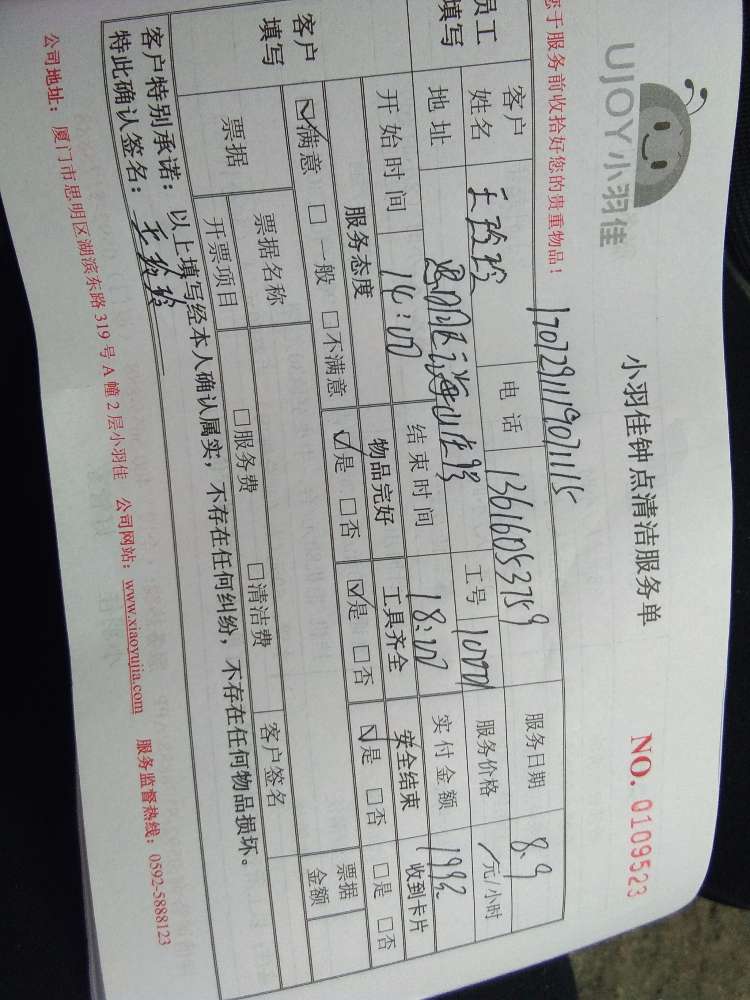 UJOY小羽佳
小羽佳钟点清洁服务单
NO. 0109523
您于服务前收拾好您的贵重物品！
170729111907 1115
员工填写
客户姓名 王玲玲 电话 13616053759 服务日期 8.9
地址 思明区 工号 10001 服务价格 元/小时
开始时间 14:00 结束时间 18:00 实付金额 1992
客户填写
服务态度 物品完好 工具齐全 安全结束 收到卡片
☑满意 □一般 □不满意 ☑是 □否 ☑是 □否 ☑是 □否 □是 □否
票据 票据名称 票据金额
开票项目 □服务费 □清洁费 客户签名
客户特别承诺：以上填写经本人确认属实，不存在任何纠纷，不存在任何物品损坏。
特此确认签名：王玲玲
公司地址：厦门市思明区湖滨东路 319 号 A 幢 2 层小羽佳 公司网站：www.xiaoyujia.com 服务监督热线：0592-5888123